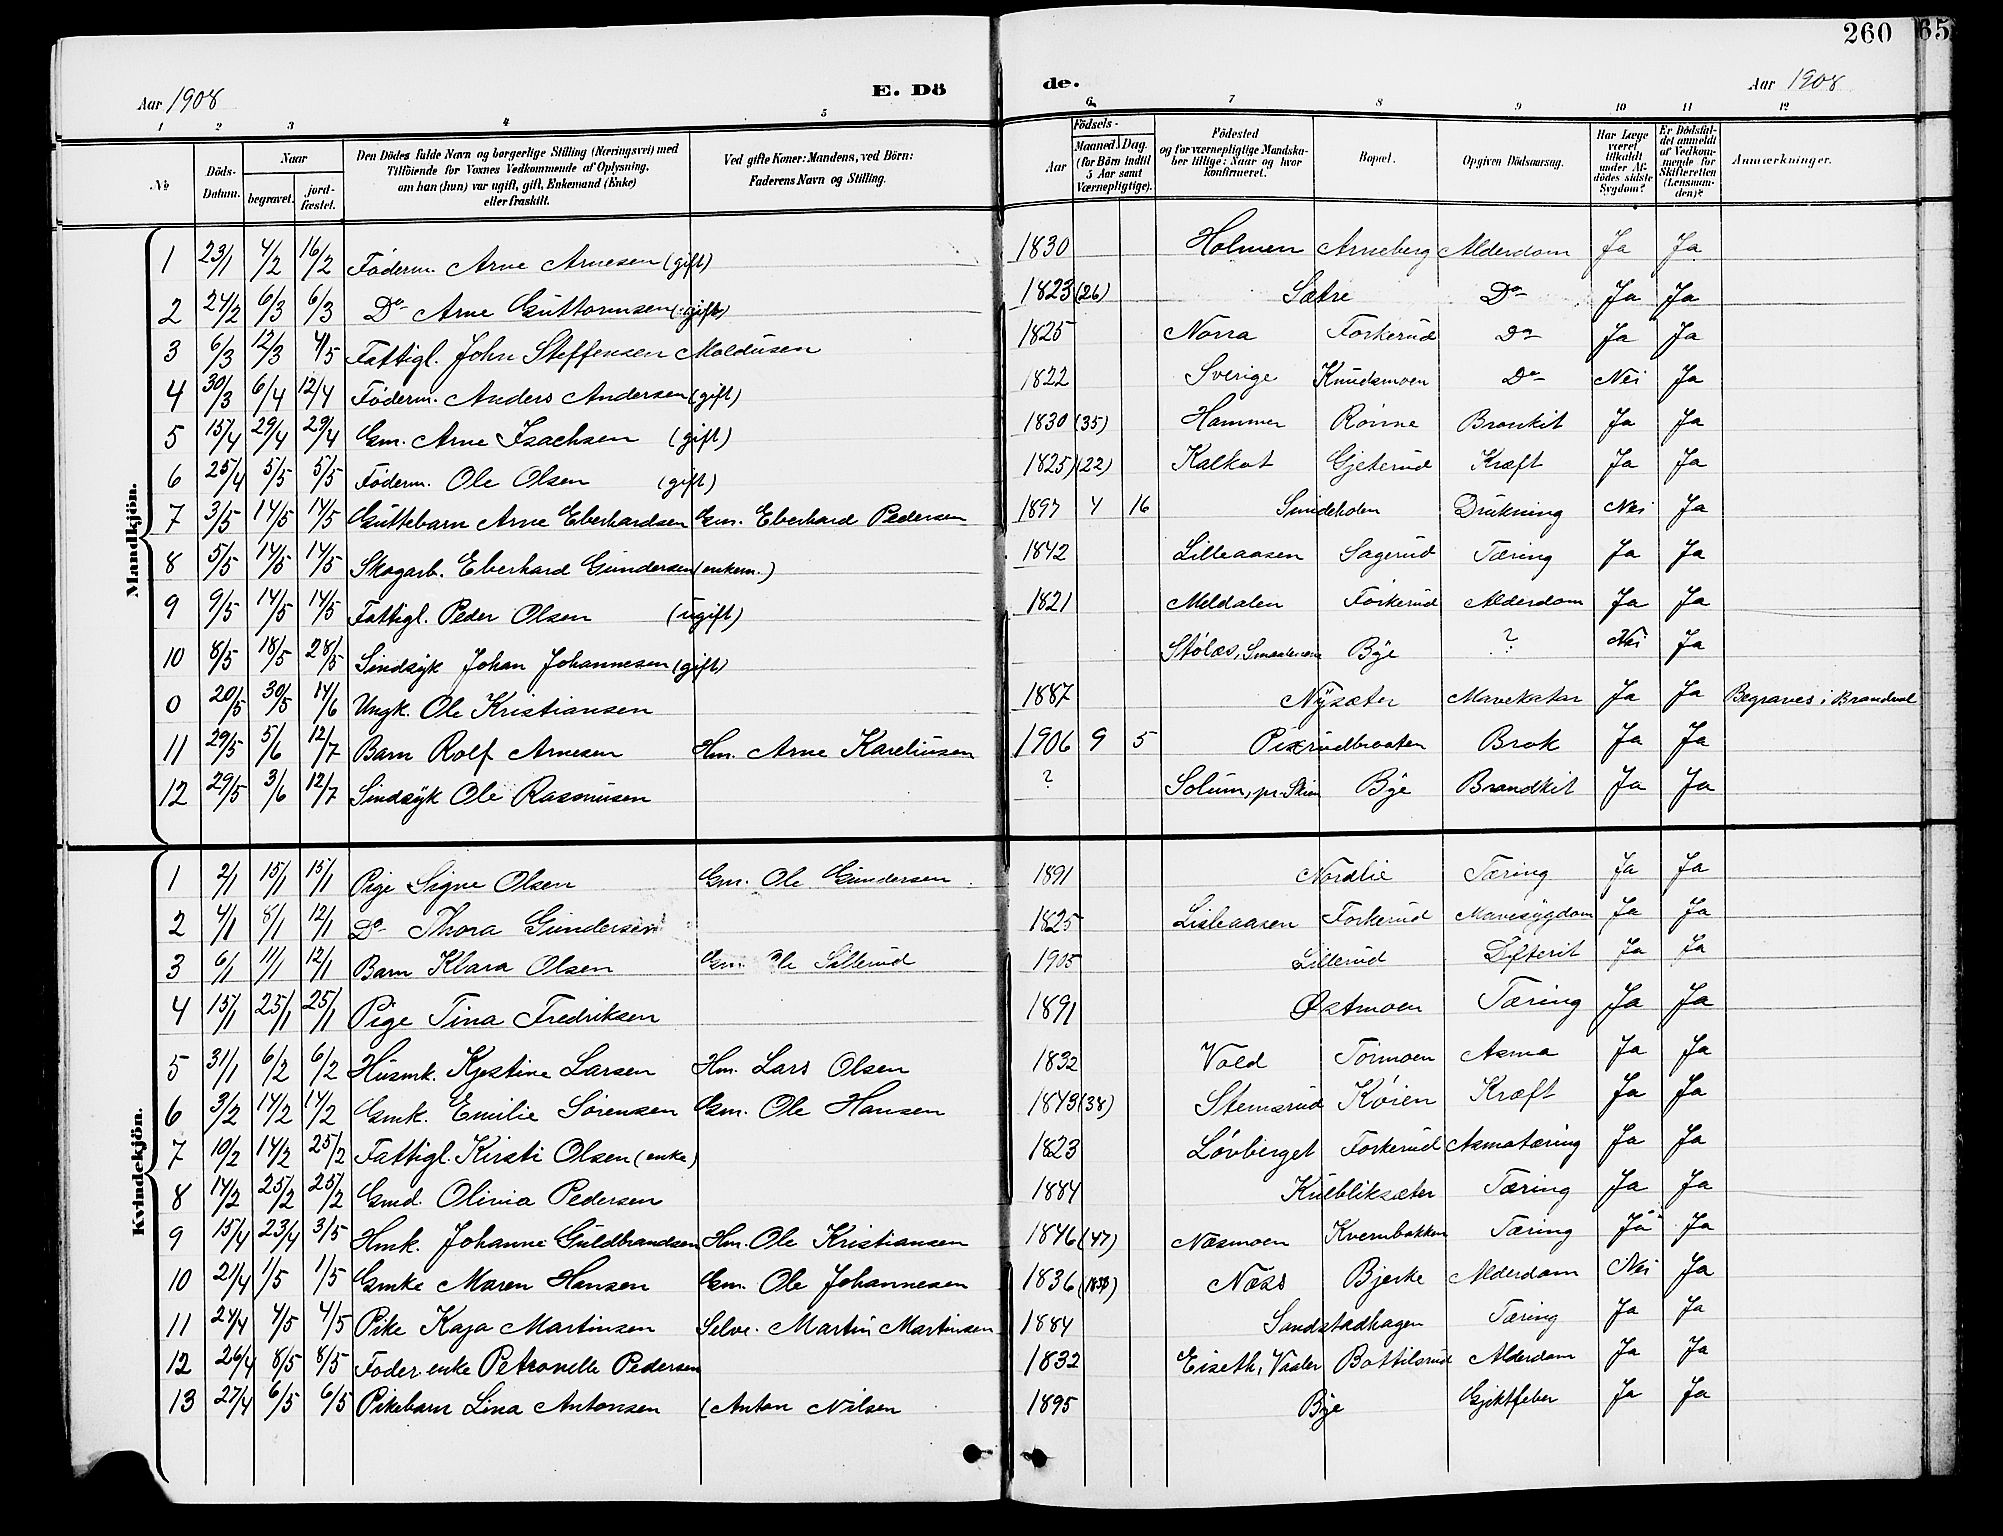 260
65
Aar 1908
E. Dö
de.
Aar 1908
1 2 3 4 5 6 7 8 9 10 11 12
No
Döds-Datum.
Naar
begravet.
jord-fæstet.
Den Dödes fulde Navn og borgerlige Stilling (Næringsvei) med
Tilföiende for Voxnes Vedkommende af Oplysning,
om han (hun) var ugift, gift, Enkemand (Enke)
eller fraskilt.
Ved gifte Koner: Mandens, ved Börn:
Faderens Navn og Stilling.
Födsels-
Aar
Maaned Dag.
(for Börn indtil
5 Aar samt
Værnepligtige).
Födested
og for værnepligtige Mandska-
ber tillige: Naar og hvor
konfirmeret.
Bopæl.
Opgiven Dödsaarsag.
Har Læge
været
tilkaldt
under Af-
dödes sidste
Sygdom?
Er Dödsfal-
det anmeldt
af Vedkom-
mende for
Skifteretten
(Lensman-
den)?
Anmærkninger.
Mandkjön.
1 23/1 4/2 16/2 Föderm. Arne Arnesen (gift) 1830 Holmen Arneberg Alderdom Ja Ja
2 24/2 6/3 6/3 Do Arne Guttormsen (gift) 1823 (26) Sætre Do Ja Ja
3 6/3 12/3 4/5 Fattigl. John Steffensen Moldusen 1825 Norra Forkerud Do Ja Ja
4 30/3 6/4 12/4 Föderm. Anders Andersen (gift) 1822 Sverige Knudsmoen Do Nei Ja
5 15/4 29/4 29/4 Gm. Arne Isachsen (gift) 1830 (35) Hammer Rönne Bronkit Ja Ja
6 25/4 5/5 5/5 Föderm. Ole Olsen (gift) 1825 (22) Kalkot Gjeterud Kræft Ja Ja
7 3/5 14/5 14/5 Guttebarn Arne Eberhardsen Gm. Eberhard Pedersen 1897 4 16 Sundeholen Drukning Nei Ja
8 5/5 14/5 14/5 Skogarb. Eberhard Gundersen (enkem.) 1842 Lilleaasen Sagerud Tæring Ja Ja
9 9/5 14/5 14/5 Fattigl. Peder Olsen (ugift) 1821 Meldalen Forkerud Alderdom Ja Ja
10 8/5 18/5 28/5 Sindsyk Johan Johannesen (gift) Bÿe ? Nei Ja
0 20/5 30/5 14/6 Ungk. Ole Kristiansen 1887 Nÿsæter Mavekatar Ja Ja Begraves i Brandval
11 29/5 5/6 12/7 Barn Rolf Arnesen Hm. Arne Kareliusen 1906 9 5 Pixrudbraaten Brok Ja Ja
12 29/5 3/6 12/7 Sindsyk Ole Rasmusen ? Solum, pr. Skien Bÿe Brandkit Ja Ja
Kvindekjön.
1 2/1 15/1 15/1 Pige Signe Olsen Gm. Ole Gundersen 1891 Nordlie Tæring Ja Ja
2 4/1 8/1 12/1 Do Thora Gundersen 1825 Lisleaasen Forkerud Mavesygdom Ja Ja
3 6/1 11/1 12/1 Barn Klara Olsen Gm. Ole Lillerud 1905 Lillerud Difterit Ja Ja
4 15/1 25/1 25/1 Pige Tina Fredriksen 1891 Østmoen Tæring Ja Ja
5 31/1 6/2 6/2 Husmk. Kjestine Larsen Hm. Lars Olsen 1832 Vold Tormoen Asma Ja Ja
6 3/2 14/2 14/2 Gmk. Emilie Sörensen Gm. Ole Hansen 1843 (38) Stemsrud Köien Kræft Ja Ja
7 10/2 14/2 25/2 Fattigl. Kirsti Olsen (enke) 1823 Lövberget Forkerud Asmatæring Ja Ja
8 14/2 25/2 25/2 Gmd. Olivia Pedersen 1884 Kulbliksæter Tæring Ja Ja
9 15/4 23/4 3/5 Hmk. Johanne Guldbrandsen Hm. Ole Kristiansen 1846 (47) Næsmoen Kvernbakken Tæring Ja Ja
10 21/4 1/5 1/5 Gmke Maren Hansen Gm. Ole Johannesen 1836 Næss Bjerke Alderdom Nei Ja
11 24/4 4/5 4/5 Pike Kaja Martinsen Selve. Martin Martinsen 1884 Sandstadhagen Tæring Ja Ja
12 26/4 8/5 8/5 Föder.enke Petronelle Pedersen 1832 Eiseth, Vaaler Bottilsrud Alderdom Ja Ja
13 27/4 6/5 6/5 Pikebarn Lina Antonsen (Anton Nilsen 1895 Bÿe Gjiktfeber Ja Ja